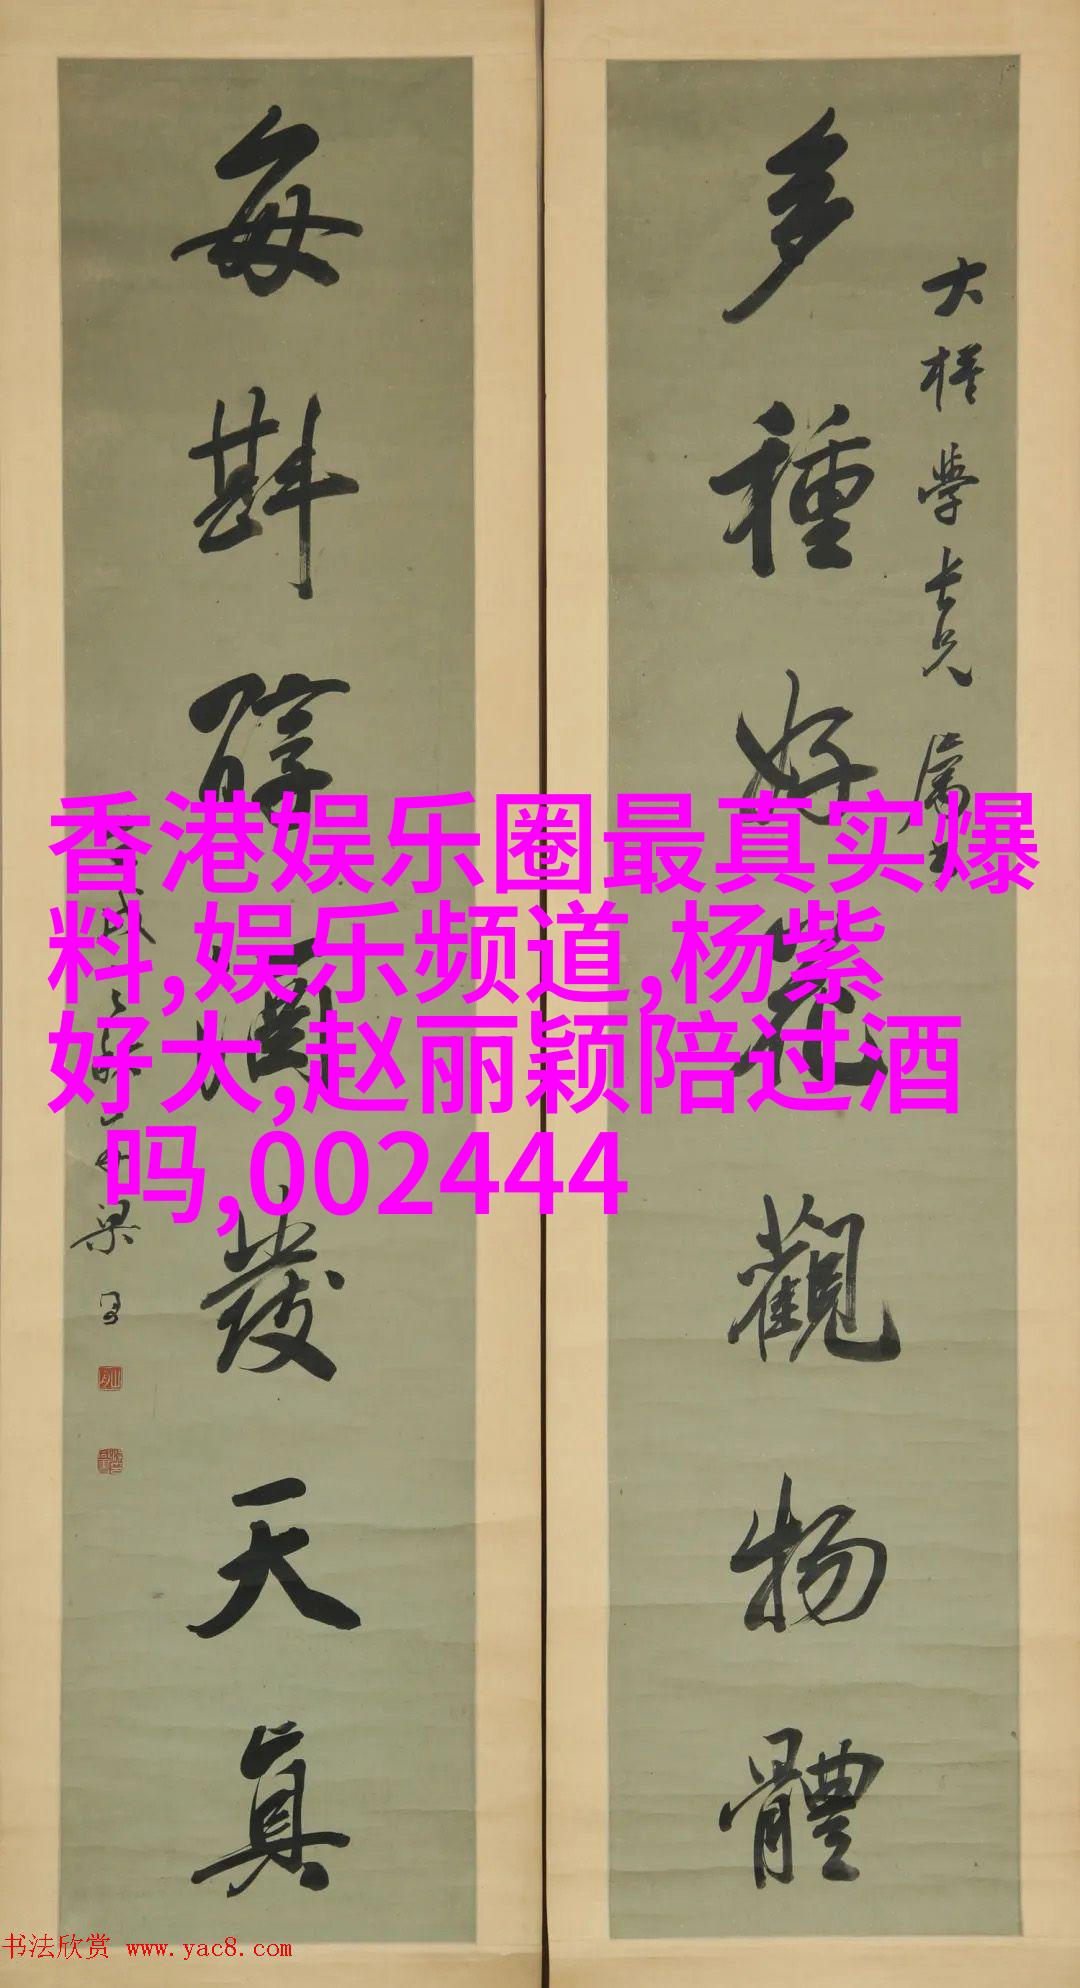 多種好花觀物體
大
學長兄屬
每斟醇酒發天真
梁同書
香港娱乐圈最真实爆
料,娱乐频道,杨紫
好大,赵丽颖陪过酒
吗,002444
书法欣赏 www.yac8.com